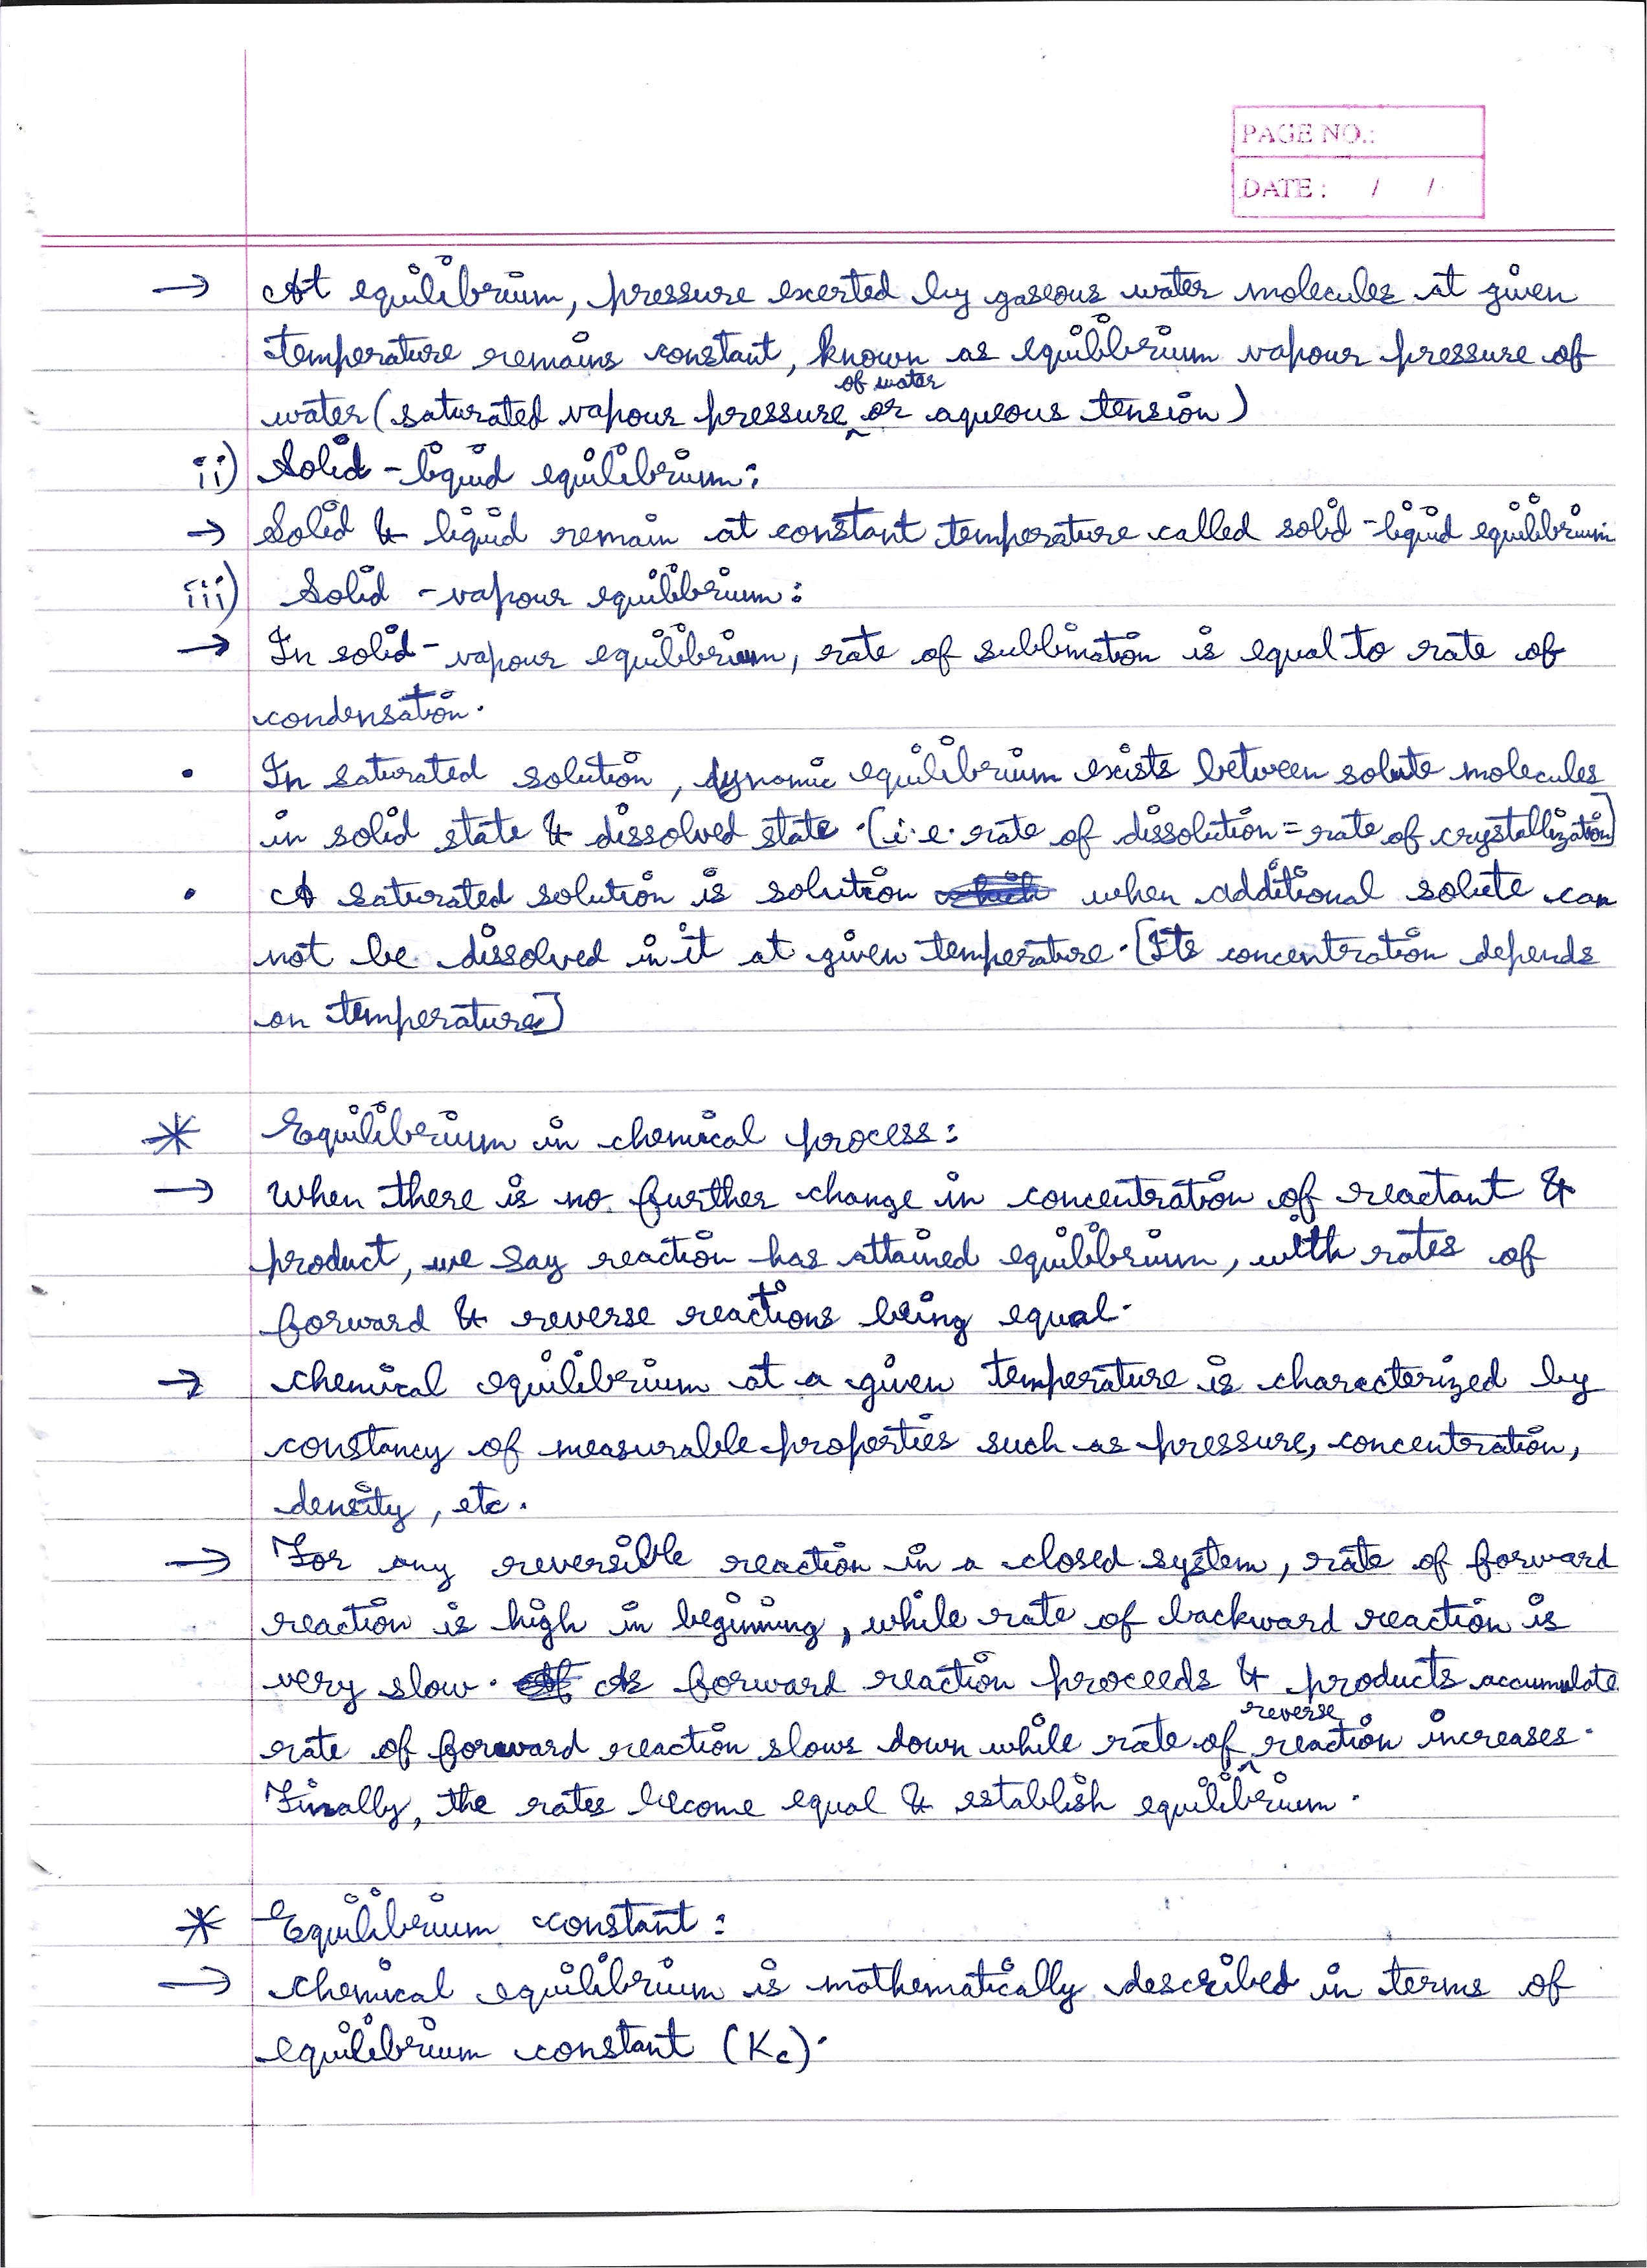 PAGE NO.:
DATE : / /
→ At equilibrium, pressure exerted by gaseous water molecules at given
temperature remains constant, known as equilibrium vapour pressure of
of water
water (saturated vapour pressure ^ or aqueous tension)
ii) Solid - liquid equilibrium:
→ Solid & liquid remain at constant temperature called solid - liquid equilibrium
iii) Solid - vapour equilibrium:
→ In solid - vapour equilibrium, rate of sublimation is equal to rate of
condensation.
• In saturated solution, dynamic equilibrium exists between solute molecules
in solid state & dissolved state. [i.e. rate of dissolution = rate of crystallization]
• A saturated solution is solution when additional solute can
not be dissolved in it at given temperature. [Its concentration depends
on temperature]
* Equilibrium in chemical process:
→ When there is no further change in concentration of reactant &
product, we say reaction has attained equilibrium, with rates of
forward & reverse reactions being equal.
→ chemical equilibrium at a given temperature is characterized by
constancy of measurable properties such as pressure, concentration,
density, etc.
→ For any reversible reaction in a closed system, rate of forward
reaction is high in beginning, while rate of backward reaction is
very slow. As forward reaction proceeds & products accumulate
reverse
rate of forward reaction slows down while rate of ^ reaction increases.
Finally, the rates become equal & establish equilibrium.
* Equilibrium constant:
→ chemical equilibrium is mathematically described in terms of
equilibrium constant (Kc).